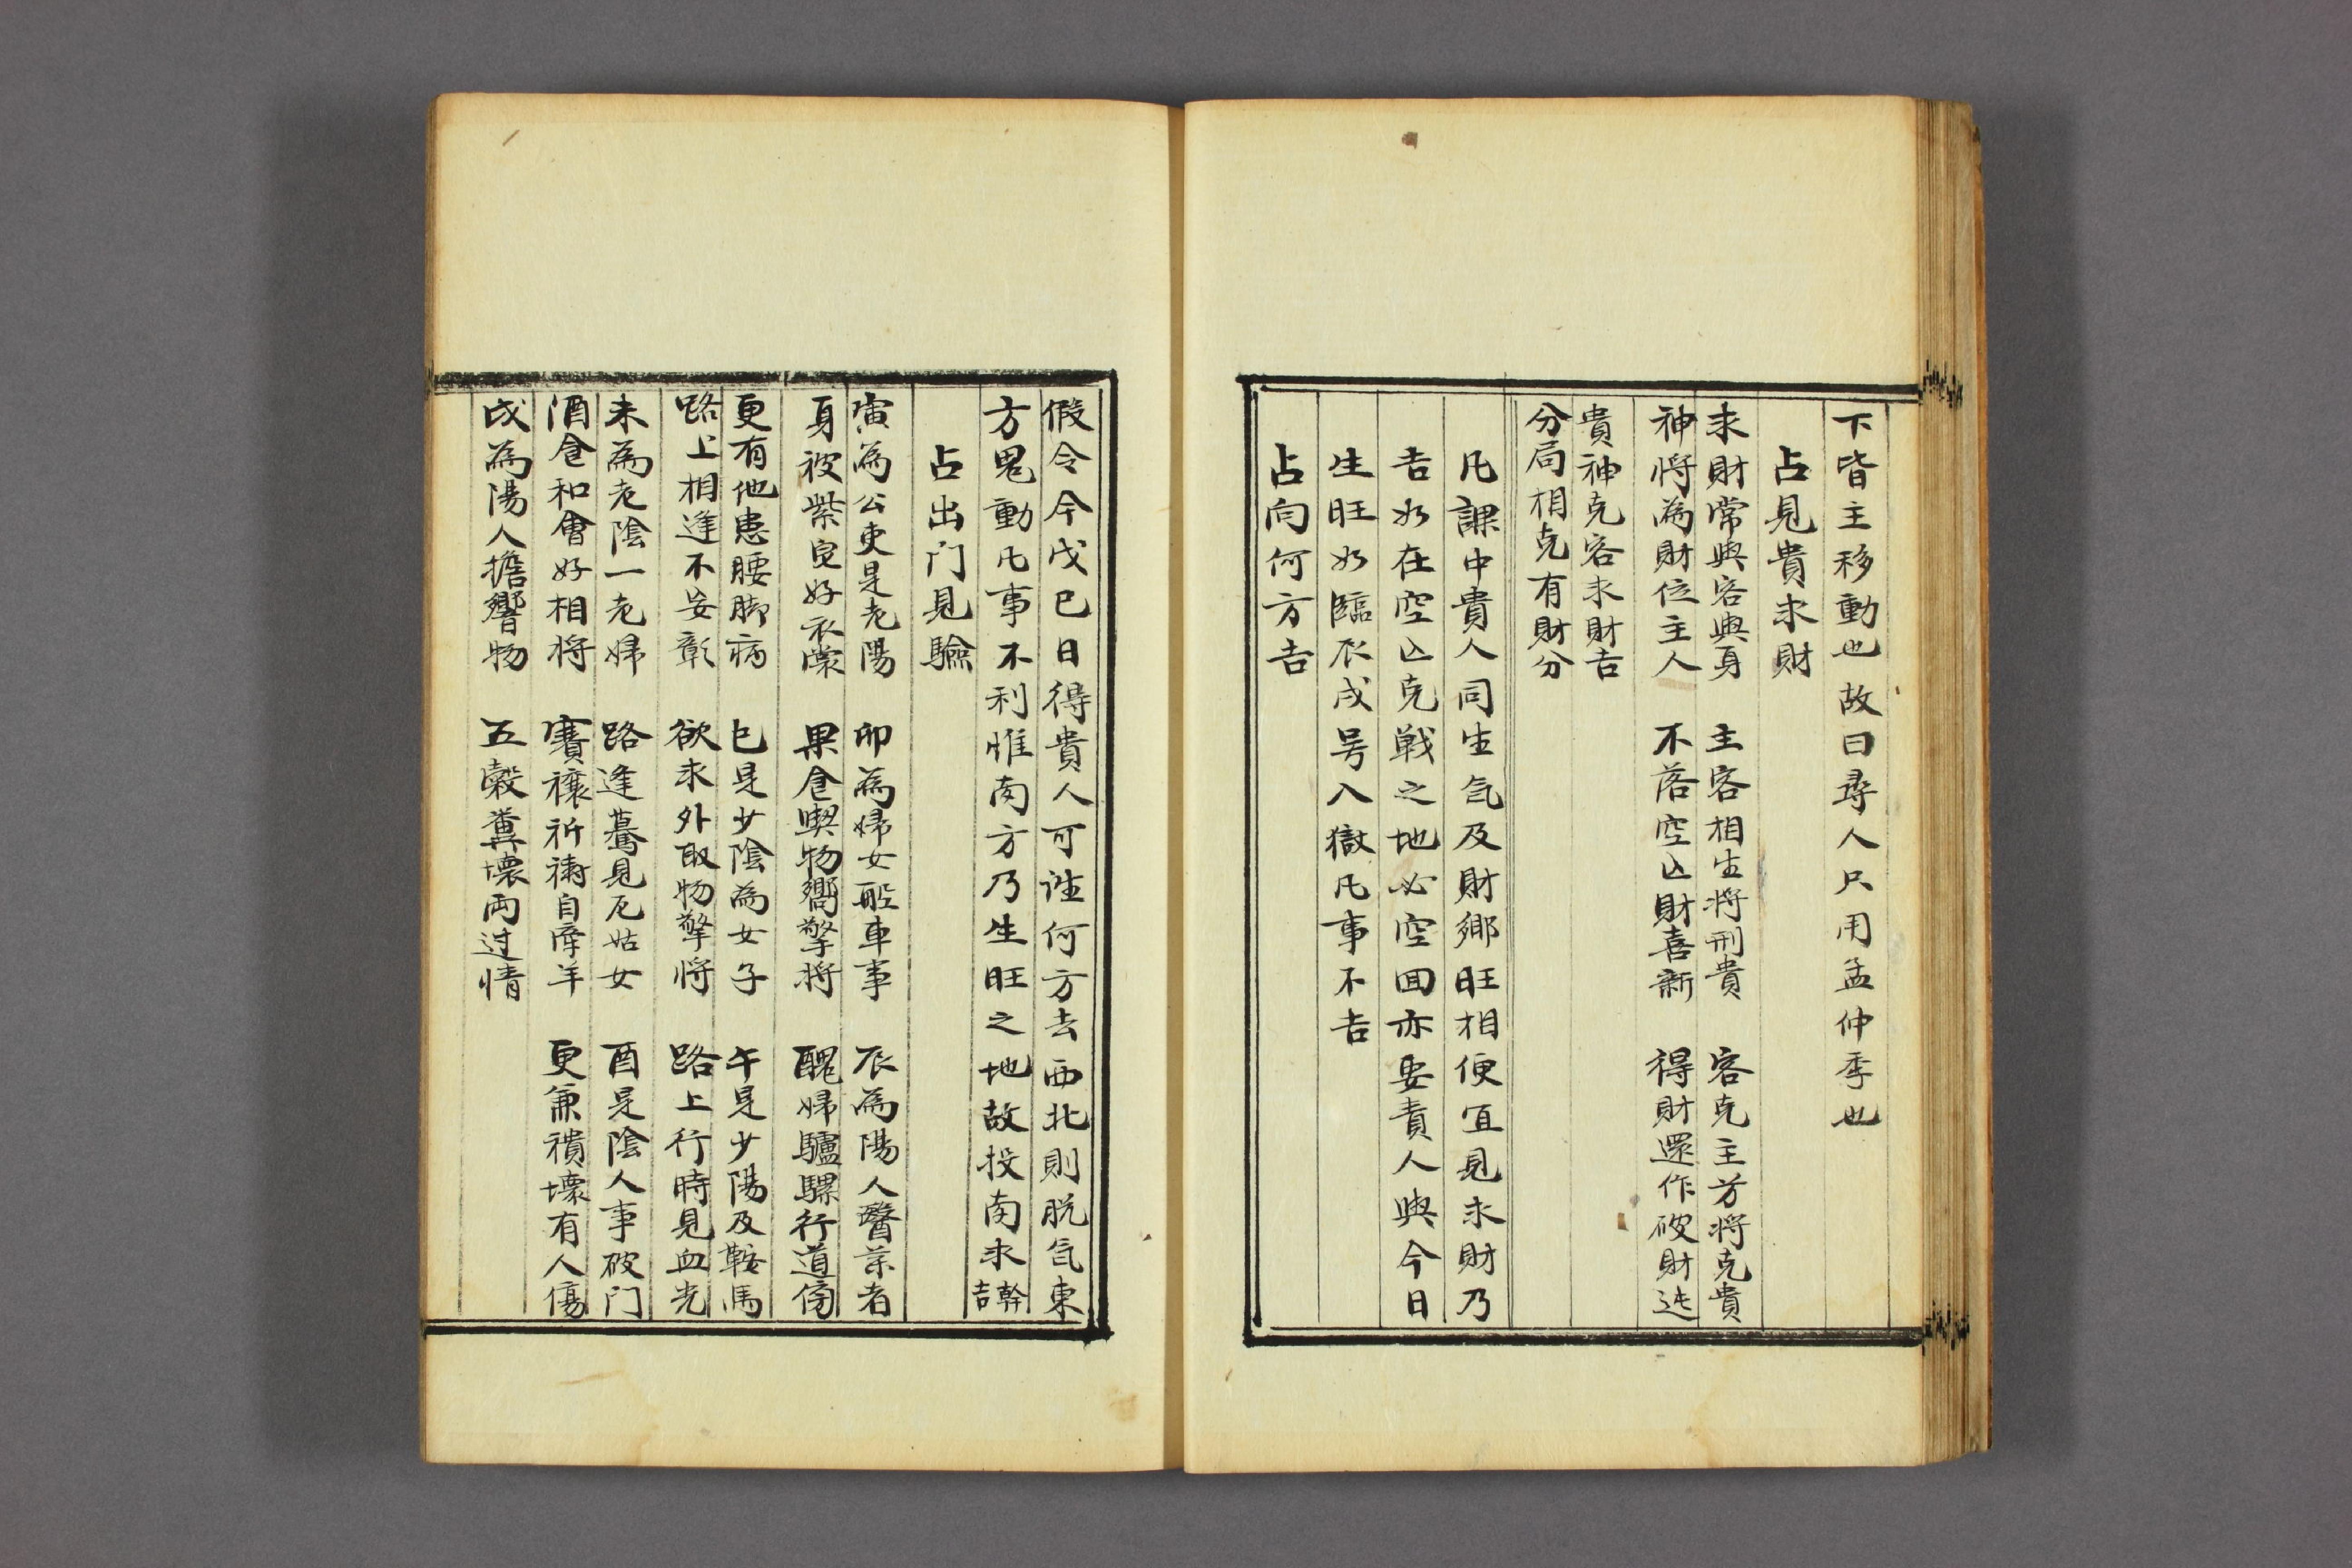 下皆主移動也故曰尋人只用孟仲季也
占見貴求財
求財常與客與身 主客相生將刑貴 客克主芳將克貴
神將為財位主人 不落空亡財喜新 得財還作破財迍
貴神克客求財吉
分局相克有財分
凡課中貴人同生氣及財鄉旺相便宜見求財乃
吉如在空亡克戦之地必空回亦要責人與今日
生旺如臨辰戌号入獄凡事不吉
占向何方吉
假令今戊巳日得貴人可諩何方去西北則脱氣東
方鬼動凡事不利惟南方乃生旺之地故投南求幹吉
占出门見驗
寅為公吏是老陽 卯為婦女船車事 辰為陽人醫業者
身被紫皂好衣裳 果食與物嚮擎將 醜婦驢騾行道傍
更有他患腰脚病 巳是少陰為女子 午是少陽及鞍馬
路上相逢不妄彰 欲求外取物擎將 路上行時見血光
未為老陰一老婦 路逢驀見尼姑女 酉是陰人事破门
酒食和會好相將 賽禳祈禱自牽羊 更兼禶壞有人傷
戌為陽人擔響物 五榖糞壞両过情